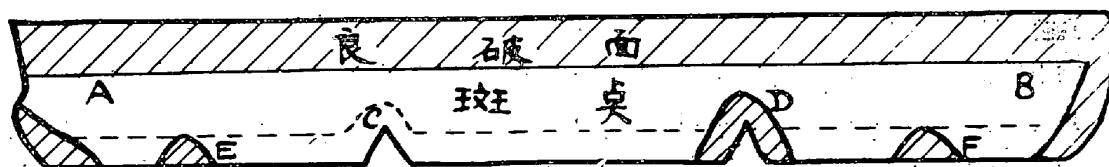 良 破 面
A 斑 点 B
C D
E F